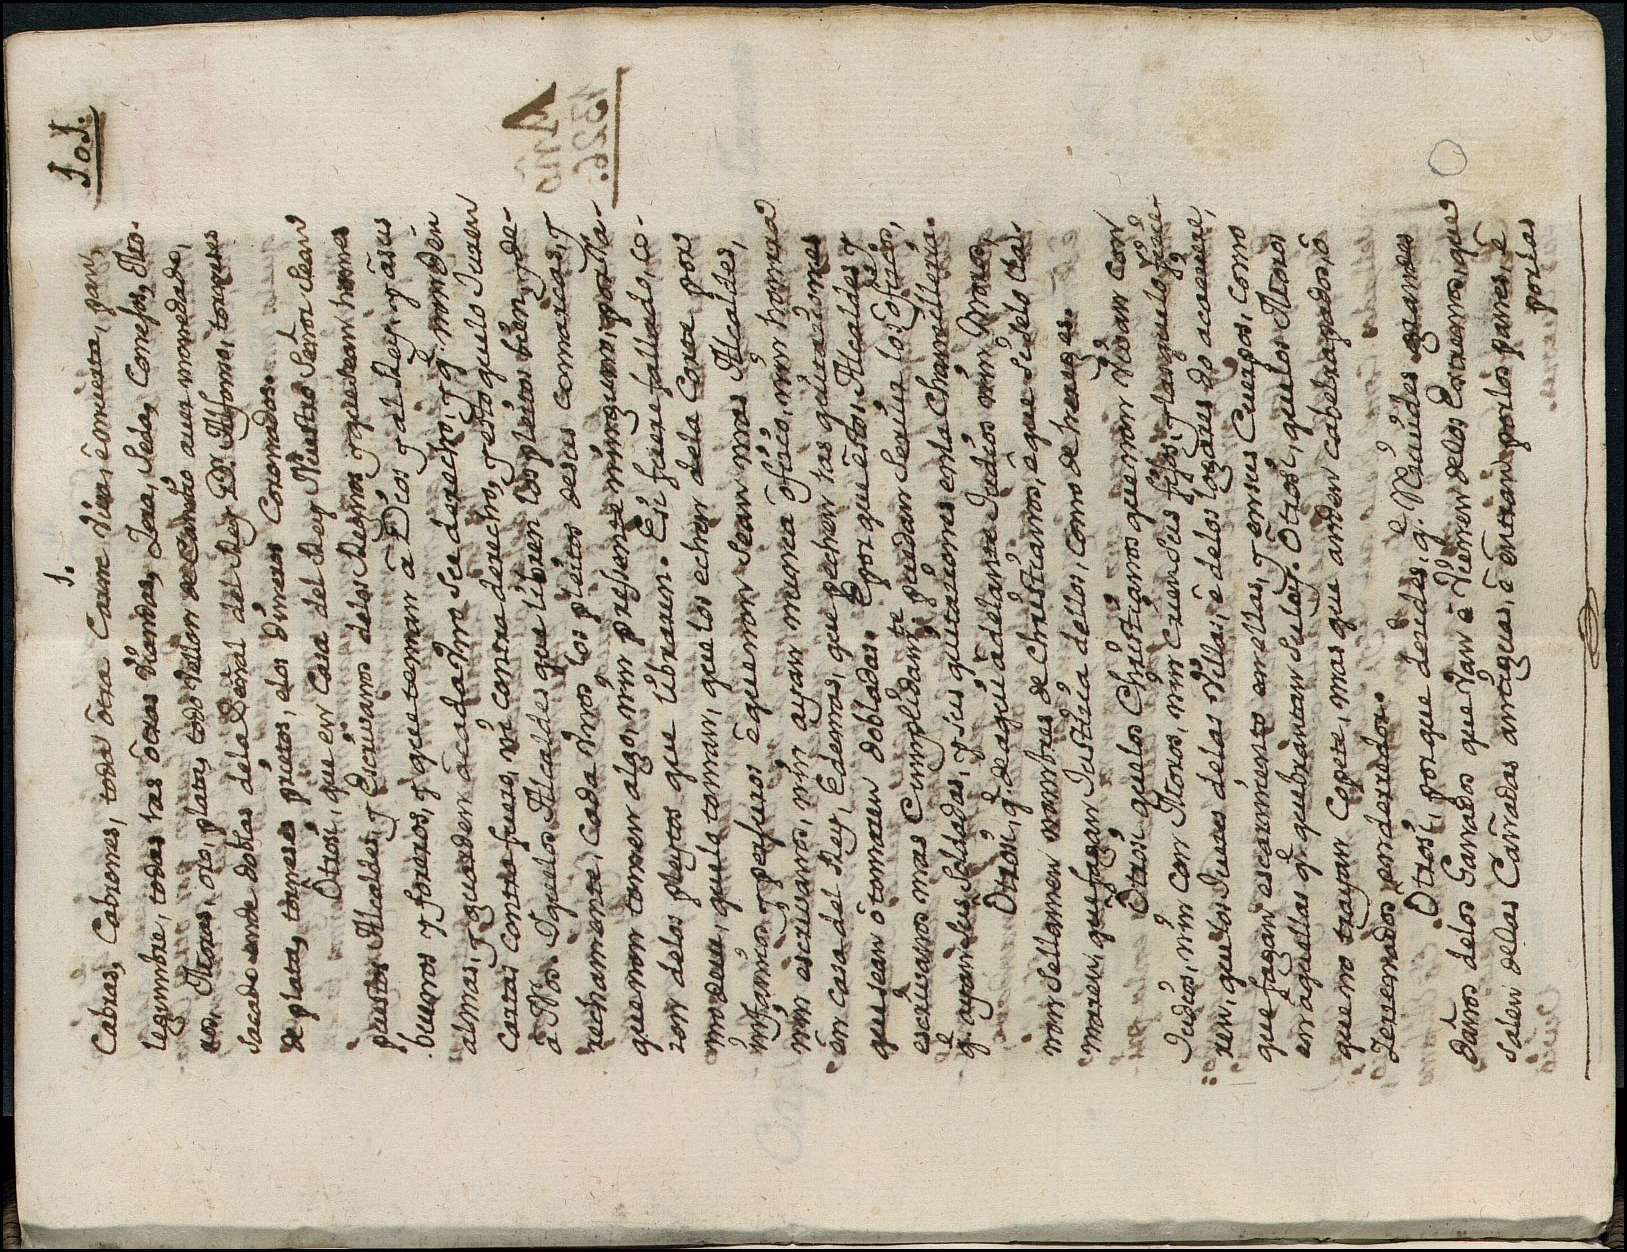 J.
J.o.J.
Cabras, Cabrones, toda otra Carne viva, é muerta, pan,
legumbre, todas las otras viandas, Zera, Seda, Conejos, Mo-
Moras, oro, plata, todo Vellon de Cambio aur monedado,
Sacado ende doblas dela Señal del Rey D.n Alfonso, torneses
de plata, torneses prietos, e los dineros Coronados.
Otrosi, que en Casa del Rey Nuestro Señor Sean
puestos Alcaldes, y Escrivanos delos Regnos, y que sean homes
buenos y foreros, y que teman á Dios y al Rey, y á sus
almas, y guarden á cada uno Su derecho, y q.e non den
Cartas Contra fuero, ni contra derecho, y esto que lo Juren
á Nos. Y que los Alcaldes que libren los pleitos bien, y de-
rechamente, Cada Unos los pleitos de sus comarcas, y
que non tomen algo, nin presente ninguno, por Ra-
zon delos pleytos que libraren. E si fuere fallado, co-
mo deve, que lo toman, que los echen dela Corte por
infamos, y perjuros, é que non Sean mas Alcaldes,
nin escrivanos, nin ayan nunca oficio, nin honrra
en casa del Rey, E demas, que pechen las quitaciones
que sean ó tomaren dobladas. E por que estos Alcaldes, y
escrivanos mas Cumplidam.te puedan Servir los oficios,
q.e ayan sus Soldadas, y sus quitaciones en la Chancilleria.
Otrosi, q.e de aquí adelante Judios nin Moros,
non se llamen nombres de Christianos, e que si se lo lla-
maren, que fagan Justicia dellos, como de hereges.
Otrosi que los Christianos que non vivan con
Judios, nin con Moros, nin crien sus fijos, y la que lo ficie-
ren, que los Jueces delas Villas, é delos logares do acaeciere,
que fagan escarmiento en ellas, y en sus Cuerpos, como
en aquellas q.e quebrantan Su ley. Otrosi, que los Moros
que no trayan Copete, mas que anden cabelrapados, ó
Zercenados en derredor.
Otrosi, por que desides, q.e Recivides grandes
daños delos Ganados que Van é Vienen delos Extremos, que
Salen delas Cañadas antiguas, é entran por los panes, é
por las